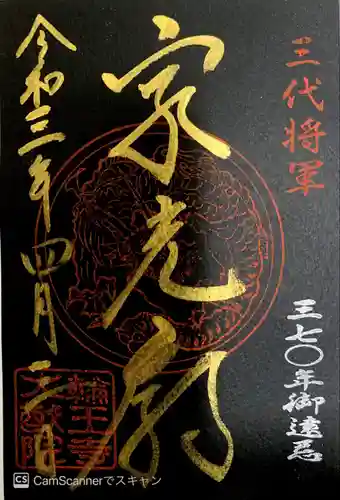 三代将軍
家光廟
三七〇年御遠忌
令和三年四月二十日
輪王寺
大猷院
CS CamScannerでスキャン